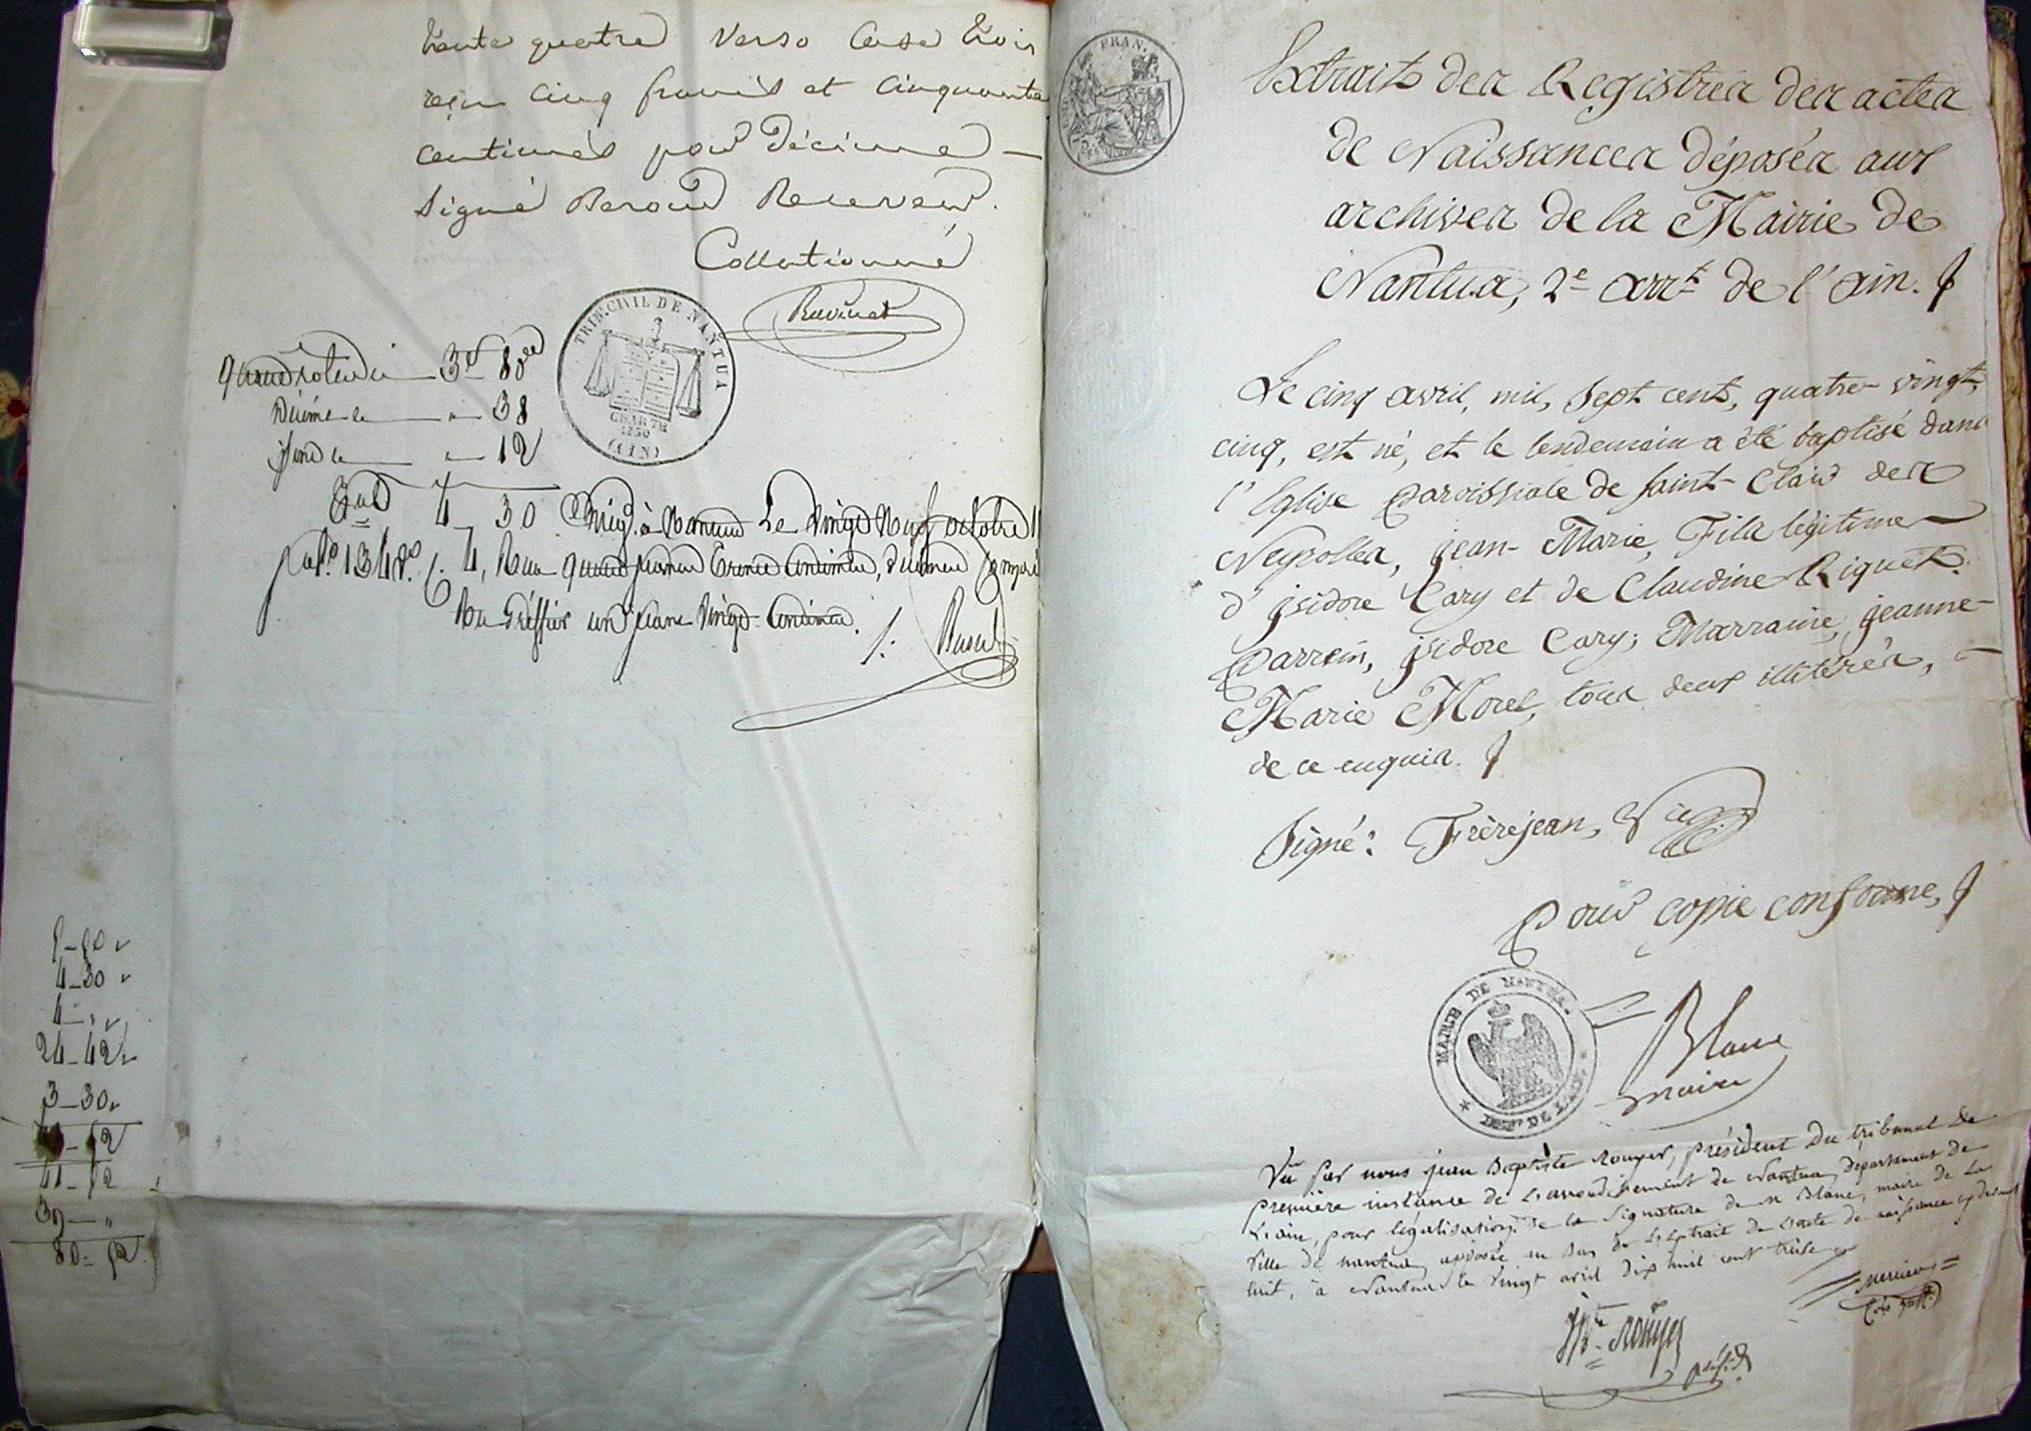 trente quatre Verso Case trois
reçu cinq francs et cinquante
centimes pour Décime —
signé Beroud Receveur.
Collationné
TRIB. CIVIL DE NANTUA
CHARTE
1830
(AIN)
3f 80
Décime 38
12
4 30 Enreg. à Nantua Le vingt Neuf octobre
f° 134 v° c. 4, Reçu quatre francs trente centimes,
Au Greffier un franc vingt centimes.
4-30
4-"
24-42
3-30
41-52
39-"
80-52
FRAN.
Extrait des Registres des actes
de Naissances déposés aux
archives de la Mairie de
Nantua, 2e arrt de l'ain.
Le cinq avril, mil, sept cent, quatre-vingt,
cinq, est né, et le lendemain a été baptisé dans
l'Eglise Paroissiale de Saint-Clair des
Neyrolles, jean-Marie, Fils légitime
d'jsidore Cary et de Claudine Riquet.
Parrein, jsidore Cary; Marraine, jeanne-
Marie Morel, tous deux illitérés,
de ce enquis.
Signé: Frèrejean, Vic
Pour copie conforme,
MAIRIE DE NANTUA
DEPt. DE L'AIN
Blanc
maire
Vu par nous jean Baptiste Rouyer, président du tribunal de
première instance de L'arrondissement de Nantua, département de
L'ain, pour légalisation de la signature de M Blanc, maire de La
Ville de nantua, apposée au bas de L'Extrait de L'acte de naissance cy dessus
à Nantua le vingt avril dix huit cent treize
Bte Rouyer
présidt